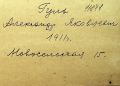 Гуль 1441
Александр Яковлевич
1911г.
Новосельская 15.